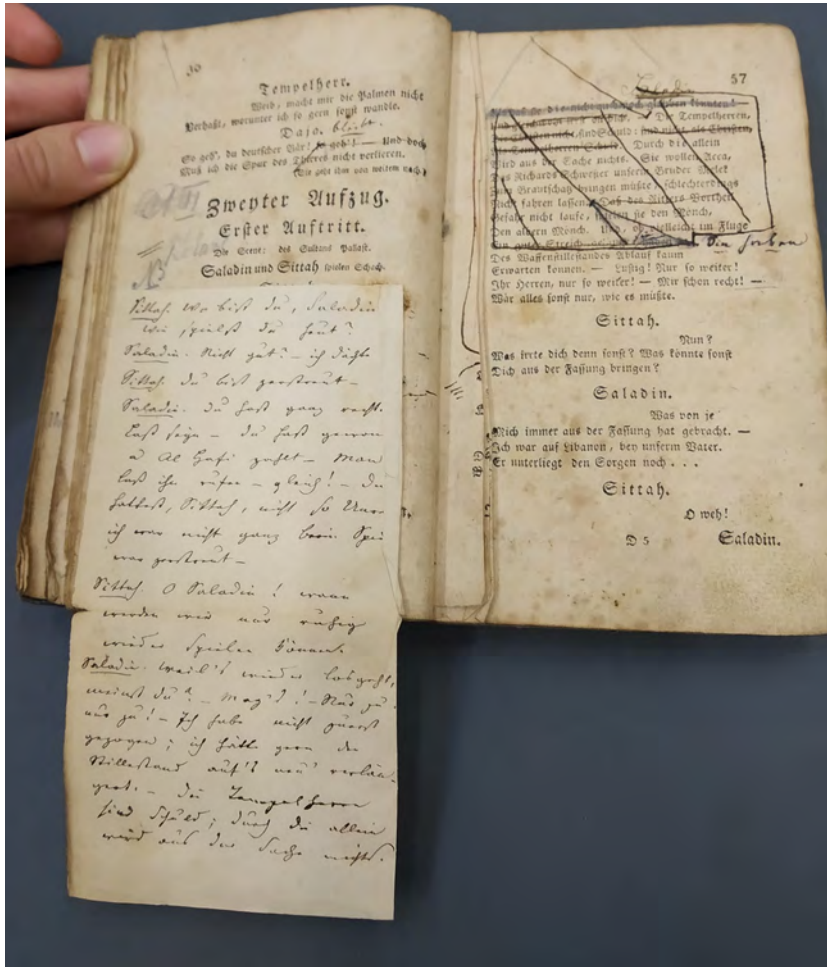 Tempelherr.
Weib, macht mir die Palmen nicht
Verhaßt, worunter ich so gern sonst wandle.
Daja. bleibt.
So geh', du deutscher Bär! so geh'! — Und doch
Muß ich die Spur des Thieres nicht verlieren.
(Sie geht ihm von weitem nach)
Zweyter Aufzug.
Erster Auftritt.
Die Scene: des Sultans Pallast.
Saladin und Sittah spielen Schach.
Sittah. Wo bist du, Saladin
wie spielst du heut?
Saladin. Nicht gut? – ich dächte
Sittah. du bist zerstreut –
Saladin. du hast ganz recht.
Laß seyn – du hast gewon
u Al Hafi zahlt – Man
laß ihn rufen – gleich! – Du
hattest, Sittah, nicht so Unre
ich war nicht ganz beim Spie
war zerstreut –
Sittah. O Saladin! wann
werden wir nur ruhig
wieder spielen können.
Saladin. Weil's wieder losgeht,
meinst du? – Mag's! – Nur zu
nur zu! – Ich habe nicht zuerst
gezogen; ich hätte gern den
Stillestand auf's neu' verlän-
gert. – die Tempelherrn
sind Schuld; durch die allein
wird aus der Sache nichts.
57
Saladin
Die Tempelherren,
Die Christen nicht, sind Schuld: sind nicht, als Christen,
Als Tempelherren Schuld. Durch die allein
Wird aus der Sache nichts. Sie wollen Acca,
Das Richards Schwester unserm Bruder Melek
Zum Brautschatz bringen müßte, schlechterdings
Nicht fahren lassen. Daß des Ritters Vortheil
Gefahr nicht laufe, spielen sie den Mönch,
Den albern Mönch. Und, ob vielleicht im Fluge
Ein guter Streich
Des Waffenstillstandes Ablauf kaum
Erwarten können. — Lustig! Nur so weiter!
Ihr Herren, nur so weiter! — Mir schon recht! —
Wär alles sonst nur, wie es müßte.
Sittah.
Nun?
Was irrte dich denn sonst? Was könnte sonst
Dich aus der Fassung bringen?
Saladin.
Was von je
Mich immer aus der Fassung hat gebracht. —
Ich war auf Libanon, bey unserm Vater.
Er unterliegt den Sorgen noch . . .
Sittah.
O weh!
D 5 Saladin.